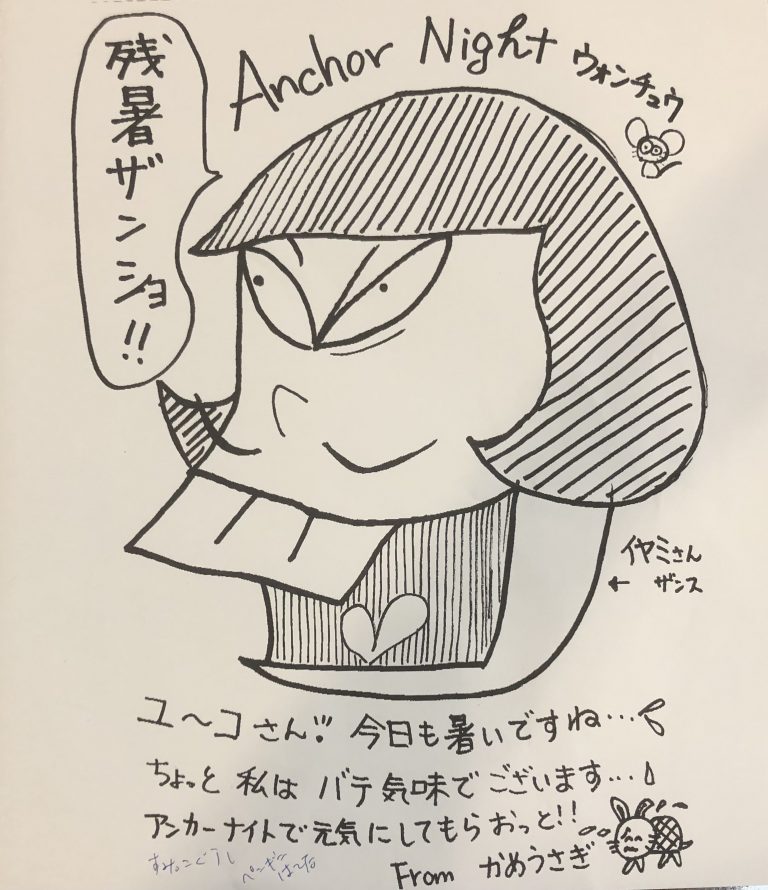 残暑ザンショ!!
Anchor Night
ウォンチュウ
イヤミさん
← ザンス
ユ〜コさん!! 今日も暑いですね…
ちょっと 私は バテ気味でございます…
アンカーナイトで元気にしてもらおっと!!
From かめうさぎ